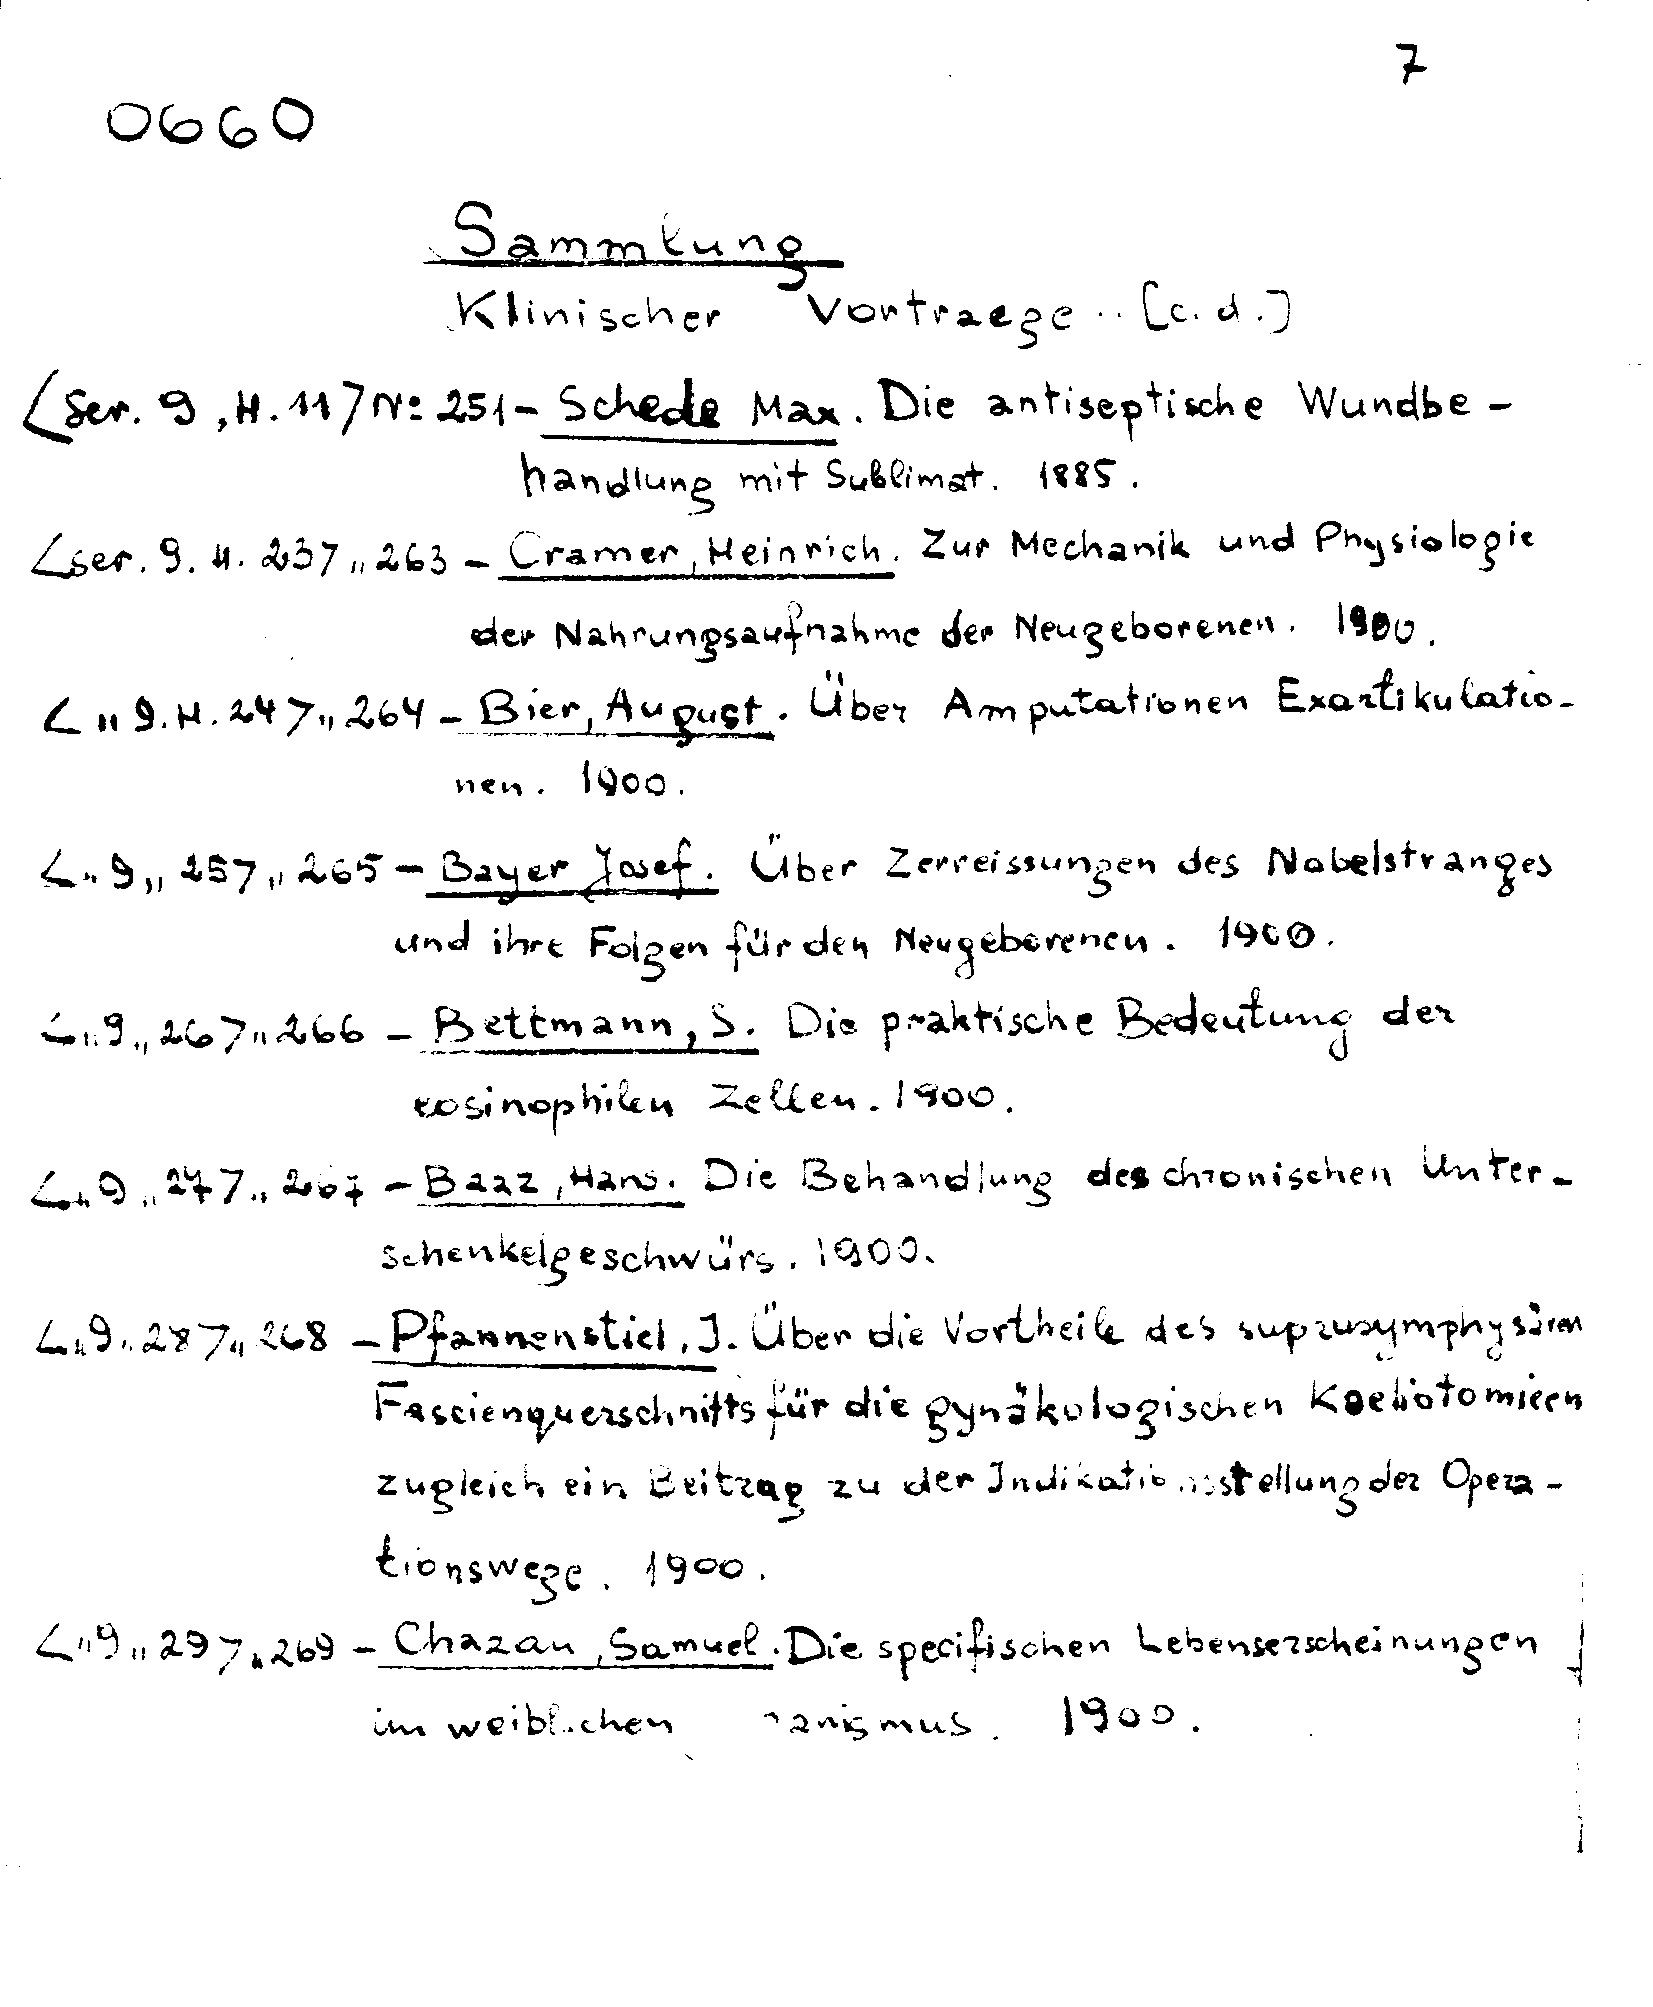 7
0660
Sammlung
Klinischer Vortraege .. [c.d.]
<Ser. 9, H. 11> No 251 - Schede Max. Die antiseptische Wundbe-
handlung mit Sublimat. 1885.
<ser. 9. H. 23> „ 263 - Cramer, Heinrich. Zur Mechanik und Physiologie
der Nahrungsaufnahme der Neugeborenen. 1900.
< „ 9. H. 24> „ 264 - Bier, August. Über Amputationen Exartikulatio-
nen. 1900.
< „ 9 „ 25> „ 265 - Bayer Josef. Über Zerreissungen des Nabelstranges
und ihre Folgen für den Neugeborenen. 1900.
< „ 9 „ 26> „ 266 - Bettmann, S. Die praktische Bedeutung der
eosinophilen Zellen. 1900.
< „ 9 „ 27> „ 267 - Baaz, Hans. Die Behandlung des chronischen Unter-
schenkelgeschwürs. 1900.
< „ 9 „ 28> „ 268 - Pfannenstiel, J. Über die Vortheile des suprasymphysären
Fascienquerschnitts für die gynäkologischen Koeliotomieen
zugleich ein Beitrag zu der Indikationsstellung der Opera-
tionswege. 1900.
< „ 9 „ 29> „ 269 - Chazan, Samuel. Die specifischen Lebenserscheinungen
im weiblichen 1900.